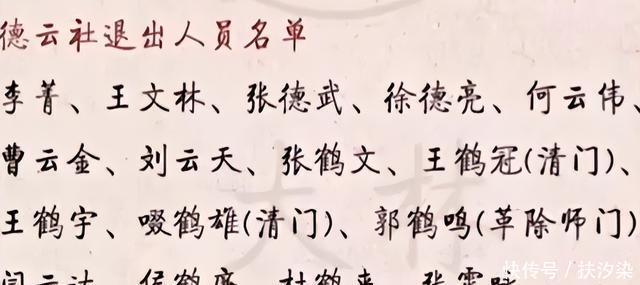 德云社退出人员名单
李菁、王文林、张德武、徐德亮、何云伟、
曹云金、刘云天、张鹤文、王鹤冠(清门)、
王鹤宇、啜鹤雄(清门)、郭鹤鸣(革除师门)
大林
快传号／扶汐染